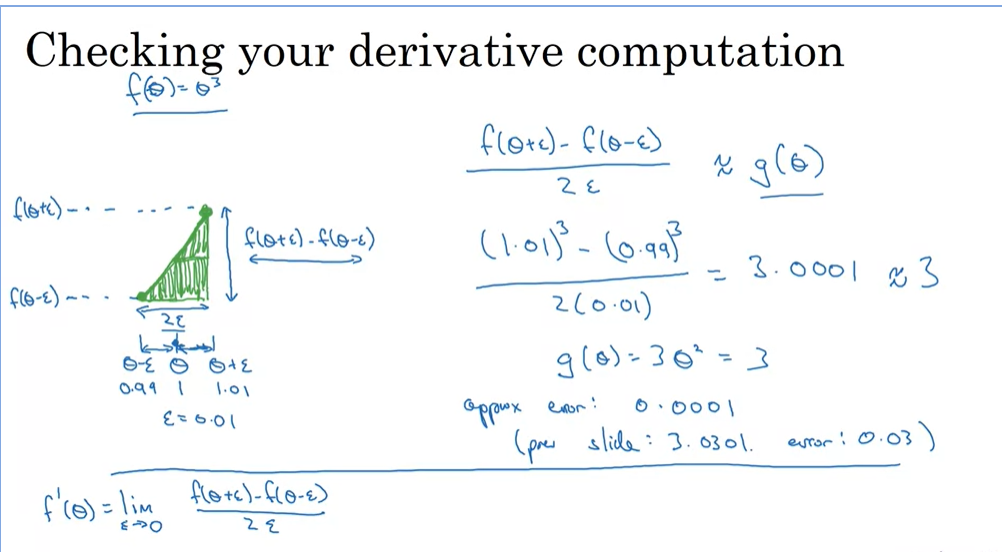 Checking your derivative computation
f(θ) = θ³
f(θ+ε) - f(θ-ε) / 2ε ≈ g(θ)
f(θ+ε)
f(θ+ε) - f(θ-ε)
f(θ-ε)
2ε
θ-ε θ θ+ε
0.99 1 1.01
ε = 0.01
(1.01)³ - (0.99)³ / 2(0.01) = 3.0001 ≈ 3
g(θ) = 3θ² = 3
approx error: 0.0001
(prev slide: 3.0301. error: 0.03)
f'(θ) = lim ε→0 f(θ+ε) - f(θ-ε) / 2ε